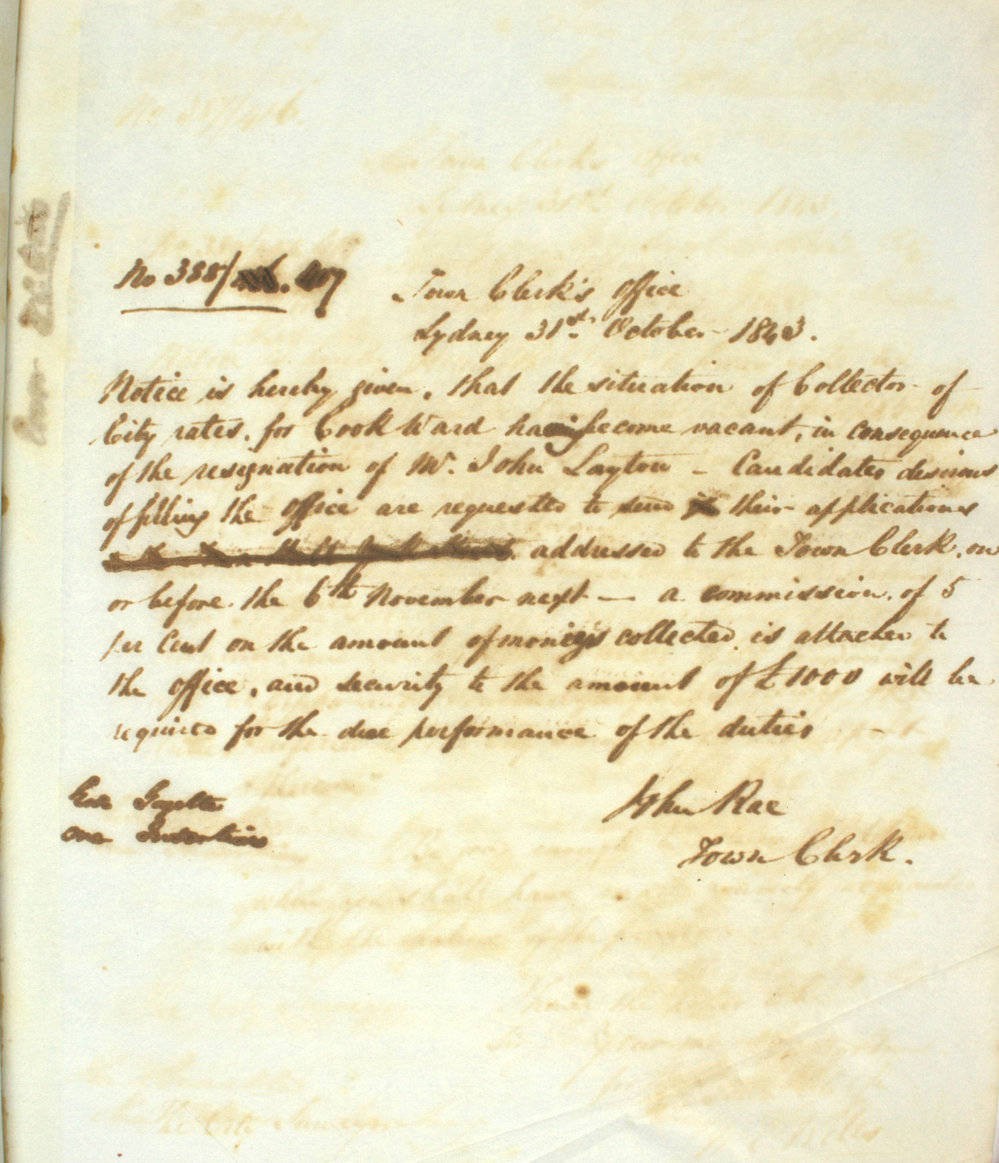 No 388/ 407
Town Clerk's Office
Sydney 31st October 1843.
Notice is hereby given, that the situation of Collector of
City rates, for Cook Ward having become vacant, in consequence
of the resignation of Mr. John Layton - Candidates desirous
of filling the office are requested to send their applications
addressed to the Town Clerk, on
or before the 6th November next — a commission of 5
per Cent on the amount of moneys collected is attached to
the office, and security to the amount of £1000 will be
required for the due performance of the duties -
John Rae
Town Clerk.
Gazette
one Insertion